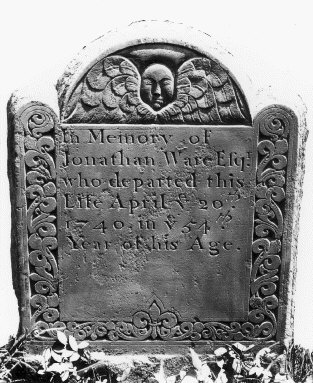 In Memory of
Jonathan Ware Esqr.
who departed this
Life April ye 20th
1740, in ye 54th
Year of his Age.